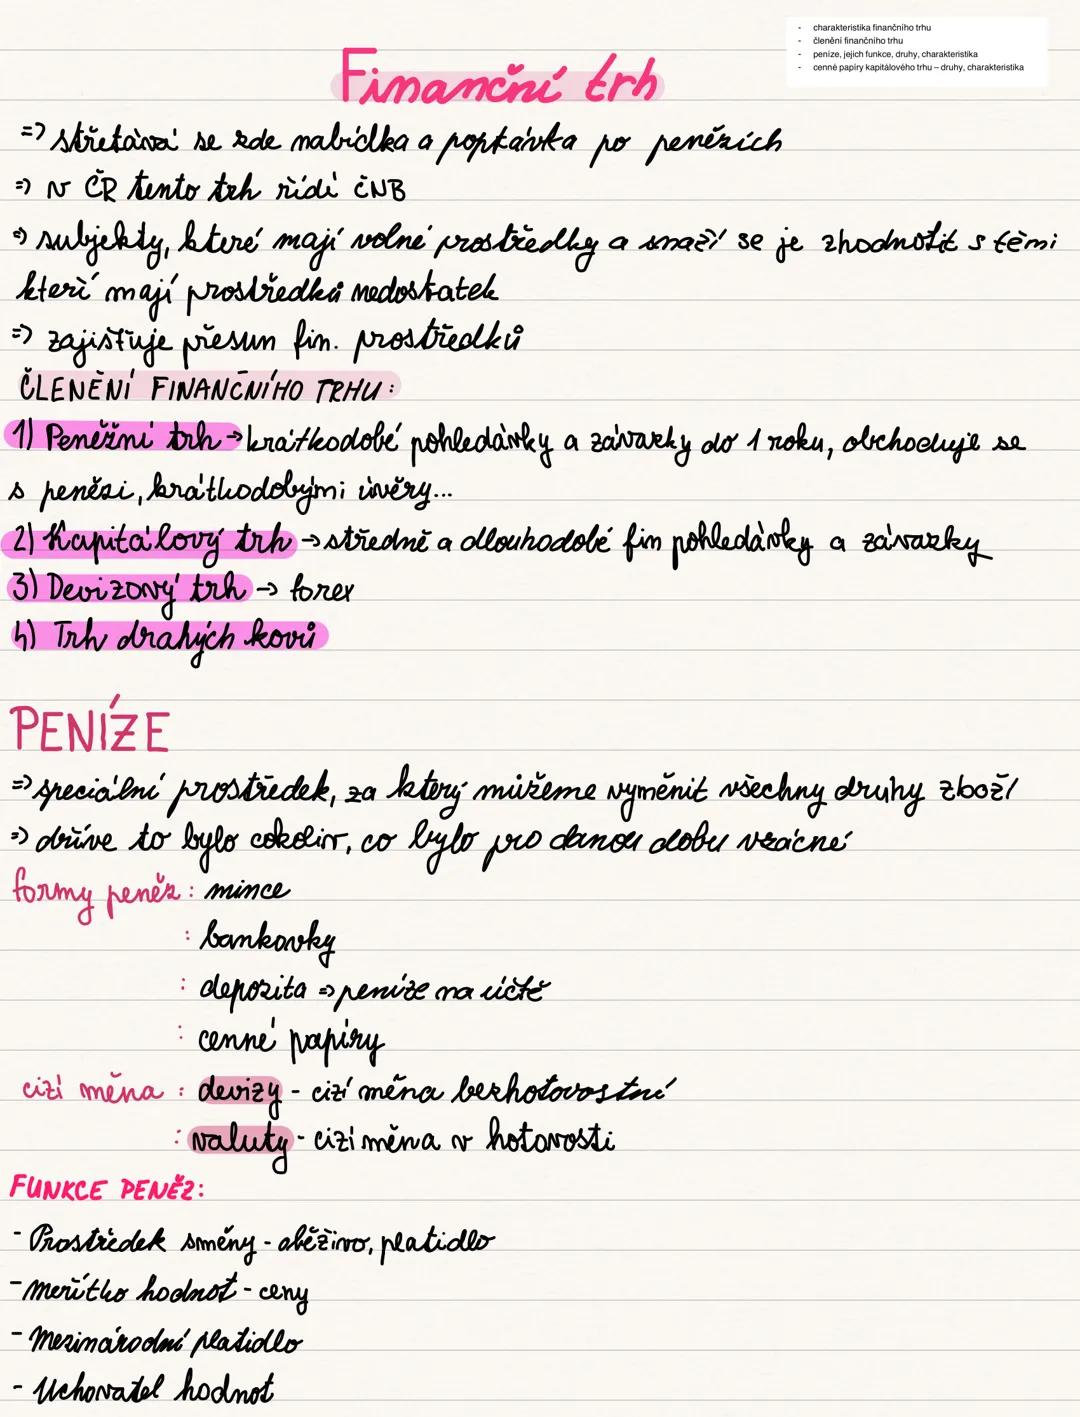 - charakteristika finančního trhu
- členění finančního trhu
- peníze, jejich funkce, druhy, charakteristika
- cenné papíry kapitálového trhu – druhy, charakteristika
Finanční trh
=> střetává se zde nabídka a poptávka po penězích
=> v ČR tento trh řídí ČNB
=> subjekty, které mají volné prostředky a snaží se je zhodnotit s těmi
kteří mají prostředků nedostatek
=> zajišťuje přesun fin. prostředků
ČLENĚNÍ FINANČNÍHO TRHU:
1) Peněžní trh → krátkodobé pohledávky a závazky do 1 roku, obchoduje se
s penězi, krátkodobými úvěry...
2) Kapitálový trh → středně a dlouhodobé fin pohledávky a závazky
3) Devizový trh → forex
4) Trh drahých kovů
PENÍZE
=> speciální prostředek, za který můžeme vyměnit všechny druhy zboží
=> dříve to bylo cokoliv, co bylo pro danou dobu vzácné
formy peněz : mince
: bankovky
: depozita => peníze na účtě
: cenné papíry
cizí měna : devizy - cizí měna bezhotovostní
: valuty - cizí měna v hotovosti
FUNKCE PENĚZ:
- Prostředek směny - oběživo, platidlo
- měřítko hodnot - ceny
- Mezinárodní platidlo
- Uchovatel hodnot